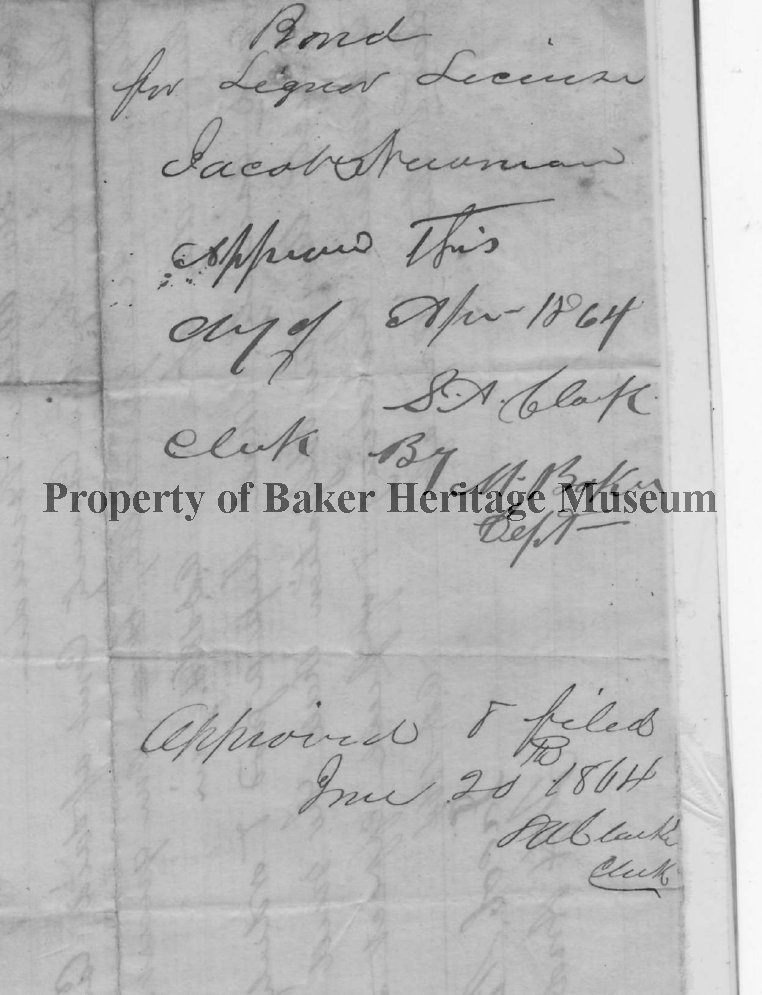 Bond
for Liquor License
Jacob Newman
Approved This
day of Apr 1864
S. A. Clark
Clerk By
Baker
Property of Baker Heritage Museum
Dept
Approved & filed
June 20th 1864
S A Clarke
Clerk